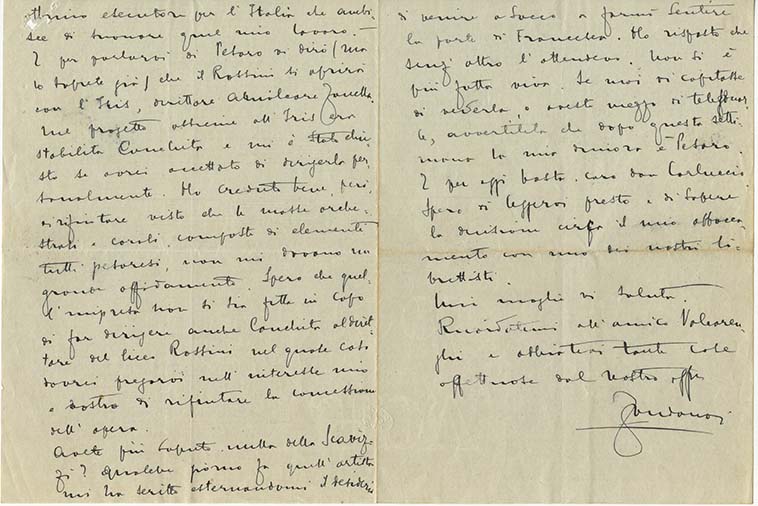 ttimo esecutori per l'Italia che ambi-
sce di suonare quel mio lavoro. —
E per parlarvi di Pesaro vi dirò (ma
lo sapete già) che il Rossini si aprirà
con l'Iris, direttore Amilcare Zanella.
Nel progetto assieme all'Iris era
stabilita Conchita e mi è stato chie-
sto se avrei accettato di dirigerla per-
sonalmente. Ho creduto bene, però,
di rifiutare visto che le masse orche-
strali e corali, composte di elementi
tutti pesaresi, non mi davano un
grande affidamento. Spero che quel-
l'impresa non si sia fitta in capo
di far dirigere anche Conchita al diret-
tore del liceo Rossini nel quale caso
dovrei pregarvi nell'interesse mio
e vostro di rifiutare la concessione
dell'opera.
Avete più saputo nulla della Scaviz-
zi? Qualche giorno fa quell'artista
mi ha scritto esternandomi il desiderio
di venire a Sacco a farmi sentire
la parte di Francesca. Ho risposto che
senz'altro l'attendevo. Non si è
più fatta viva. Se mai vi capitasse
di vederla, o aveste mezzo di telefonar-
le, avvertitela che dopo questa setti-
mana la mia dimora è Pesaro.
E per oggi basta, caro don Carluccio
Spero di leggervi presto e di sapere
la decisione circa il mio abbocca-
mento con uno dei nostri li-
brettisti.
Mia moglie vi saluta.
Ricordatemi all'amico Valcaren-
ghi e abbiatevi tante cose
affettuose dal vostro aff.
Zandonai